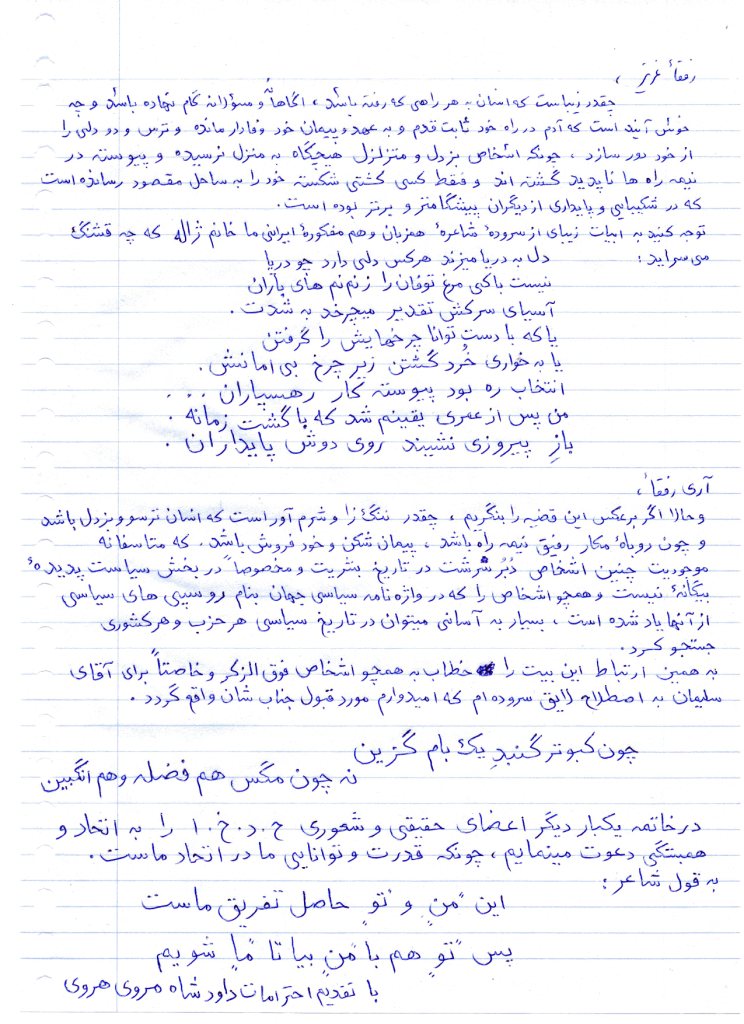 رفقأ عزیز ،
چقدر زیباست که انسان به هر راهی که رفته باشد ، اگاهانه و مسؤلانه گام نهاده باشد و چه
خوش آیند است که آدم در راه خود ثابت قدم و به عهد و پیمان خود وفادار مانده و ترس و دو دلی را
از خود دور سازد ، چونکه اشخاص بزدل و متزلزل هیچگاه به منزل نرسیده و پیوسته در
نیمه راه ها ناپدید گشته اند و فقط کسی کشتی شکسته خود را به ساحل مقصود رسانده است
که در شکیبایی و پایداری از دیگران پیشگامتر و برتر بوده است .
توجه کنید به ابیات زیبای از سرودهٔ شاعرهٔ همزبان و هم مفکورهٔ ایرانی ما خانم ژاله که چه قشنگ
می سراید :
دل به دریا میزند هرکس دلی دارد چو دریا
نیست باکی مرغ توفان را زنم نم های باران
آسیای سرکش تقدیر میچرخد به شدت .
یا که با دست توانا چرخهایش را گرفتن
یا به خواری خُرد گشتن زیر چرخ بی امانش .
انتخاب ره بود پیوسته کار رهسپاران . . .
من پس از عمری یقینم شد که با گشت زمانه .
بازِ پیروزی نشیند روی دوش پایداران .
آری رفقأ ،
و حالا اگر برعکس این قضیه را بنگریم ، چقدر ننگ زا و شرم آور است که انسان ترسو و بزدل باشد
و چون روباهٔ مکار رفیق نیمه راه باشد ، پیمان شکن و خود فروش باشد . که متاسفانه
موجودیت چنین اشخاص دُبُر سُرشت در تاریخ بشریت و مخصوصاً در بخش سیاست پدیدهٔ
بیگانهٔ نیست و همچو اشخاص را که در واژه نامه سیاسی جهان بنام روسپی های سیاسی
از آنها یاد شده است ، بسیار به آسانی میتوان در تاریخ سیاسی هر حزب و هر کشوری
جستجو کرد .
به همین ارتباط این بیت را خطاب به همچو اشخاص فوق الذکر و خاصتاً برای آقای
سلیمان به اصطلاح لایق سروده ام که امیدوارم مورد قبول جناب شان واقع گردد .
چون کبوتر گنبدِ یک بام گزین
نه چون مگس هم فضله و هم انگبین
درخاتمه یکبار دیگر اعضای حقیقی و شعوری ح . د . خ . ا را به اتحاد و
همبستگی دعوت مینمایم ، چونکه قدرت و توانایی ما در اتحاد ماست .
به قول شاعر :
این "من" و "تو" حاصل تفریق ماست
پس "تو" هم با "من" بیا تا "ما" شویم
با تقدیم احترامات داود شاه مروی هروی